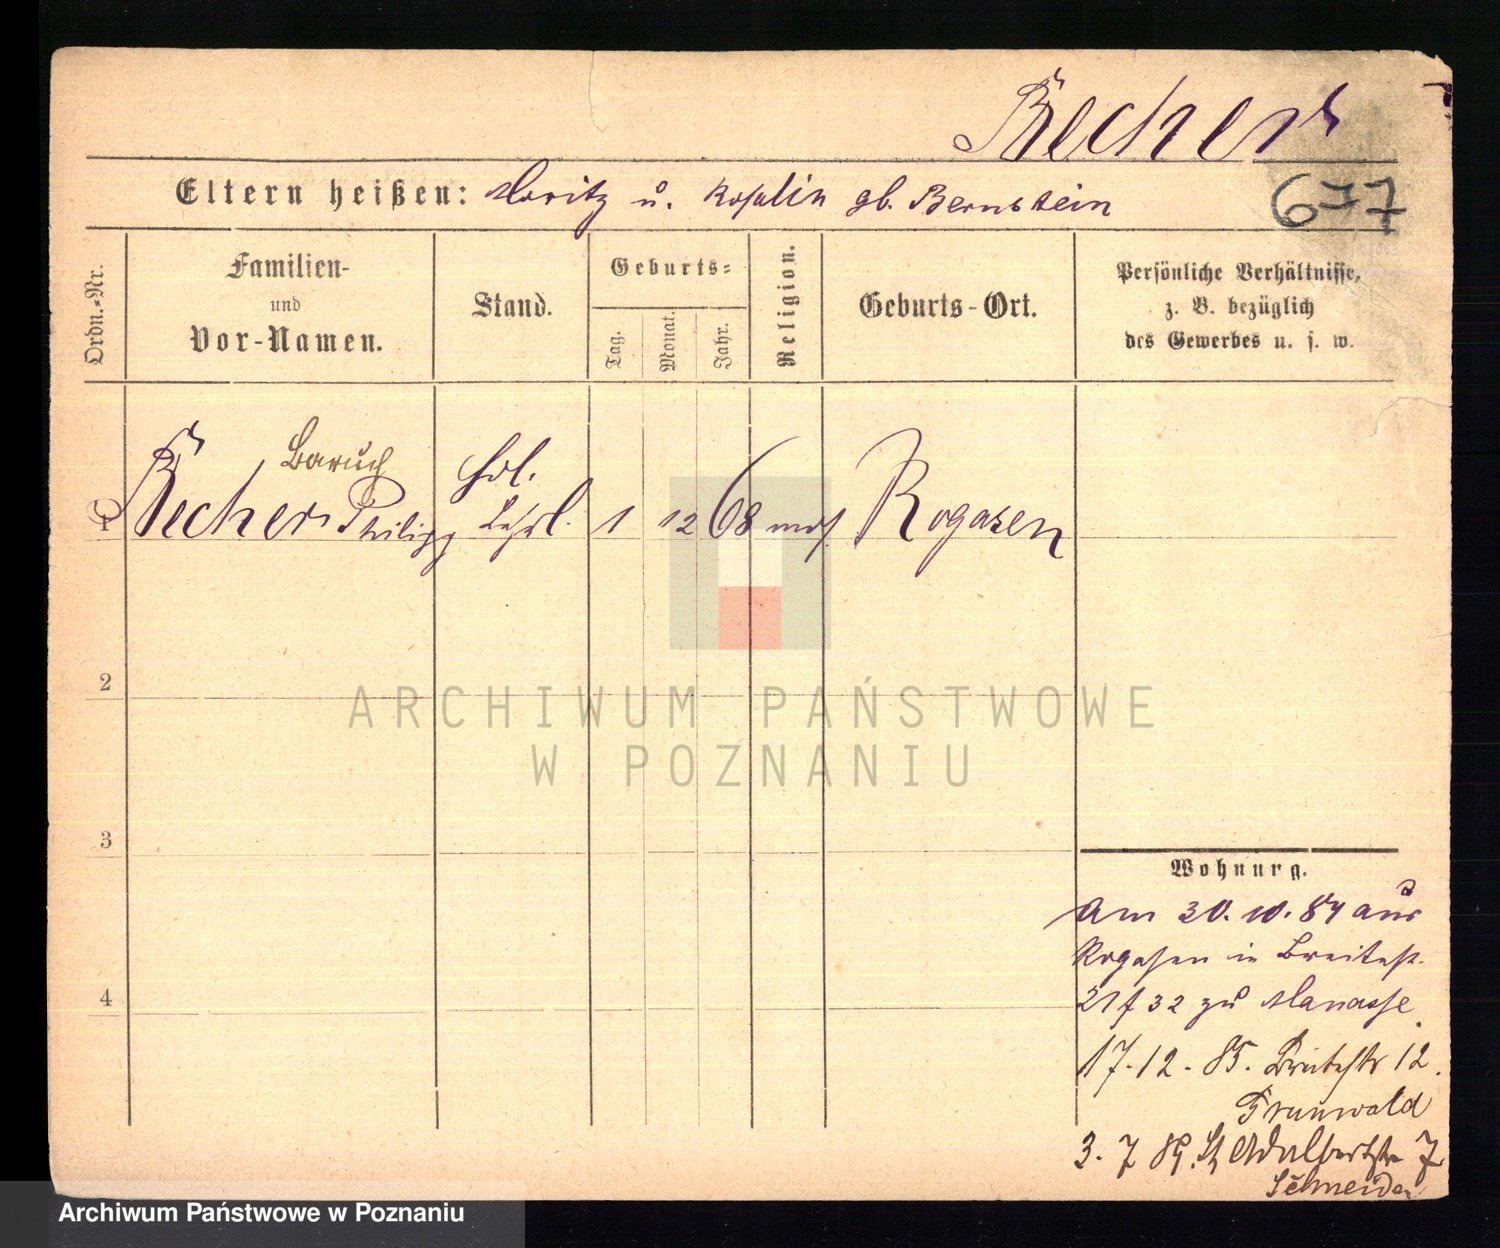 Becher
Eltern heißen: Moritz u. Rosalin gb. Bernstein
677
Ordn.-Nr.
Familien-
und
Vor-Namen.
Stand.
Geburts-
Tag.
Monat.
Jahr.
Religion.
Geburts-Ort.
Persönliche Verhältnisse,
z. B. bezüglich
des Gewerbes u. s. w.
Baruch
Hdl.
1 Becher Philipp Lehrl. 1 12 68 mos. Rogasen
2
3
4
Wohnung.
Am 30. 10. 84 aus
Rogasen in Breitestr.
21 / 32 zu Manasse
17.12.85. Breitestr 12.
Grunwald
3. 7 89. St Adalbertstr 7
Schneider
ARCHIWUM PAŃSTWOWE
W POZNANIU
Archiwum Państwowe w Poznaniu